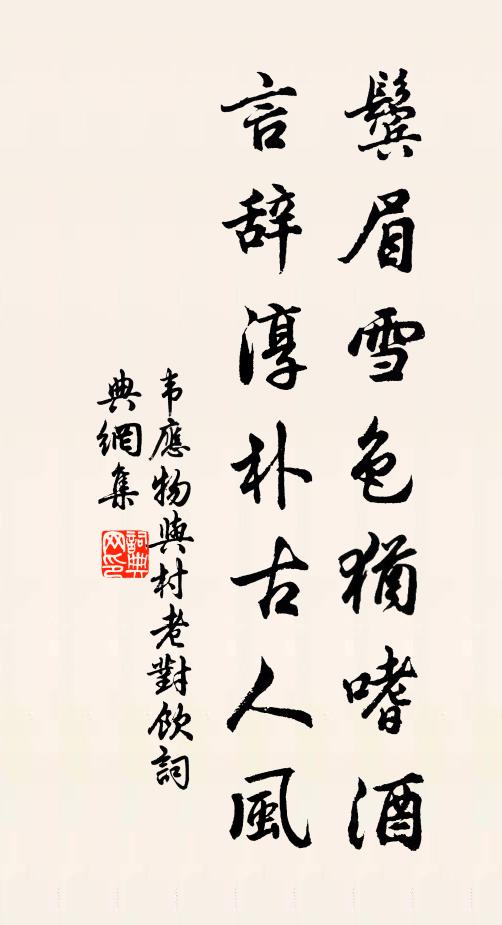 鬓眉雪色猶嗜酒
言辞淳朴古人風
韦應物與村老對飲詞
典網集
詞典网印